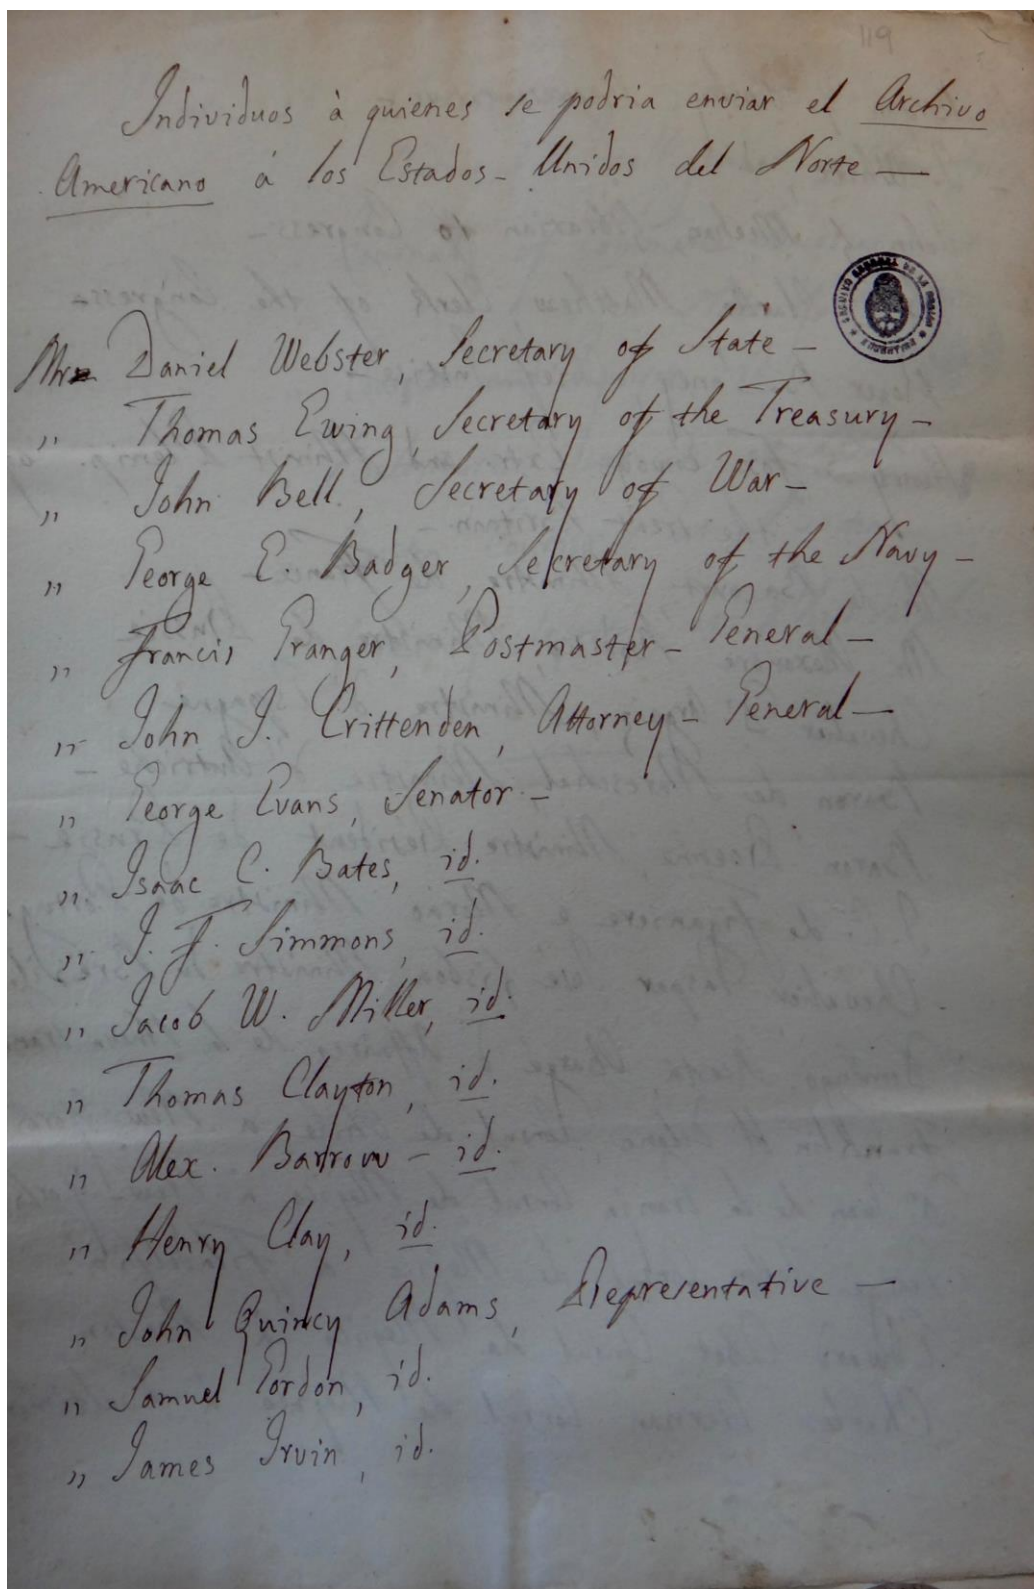 119
Individuos à quienes se podria enviar el Archivo
Americano à los Estados-Unidos del Norte —
Mr. Daniel Webster, Secretary of State —
" Thomas Ewing, Secretary of the Treasury —
" John Bell, Secretary of War —
" George E. Badger, Secretary of the Navy —
" Francis Granger, Postmaster-General —
" John J. Crittenden, Attorney-General —
" George Evans, Senator —
" Isaac C. Bates, id.
" J. F. Simmons, id.
" Jacob W. Miller, id.
" Thomas Clayton, id.
" Alex. Barrow — id.
" Henry Clay, id.
" John Quincy Adams, Representative —
" Samuel Gordon, id.
" James Irvin, id.